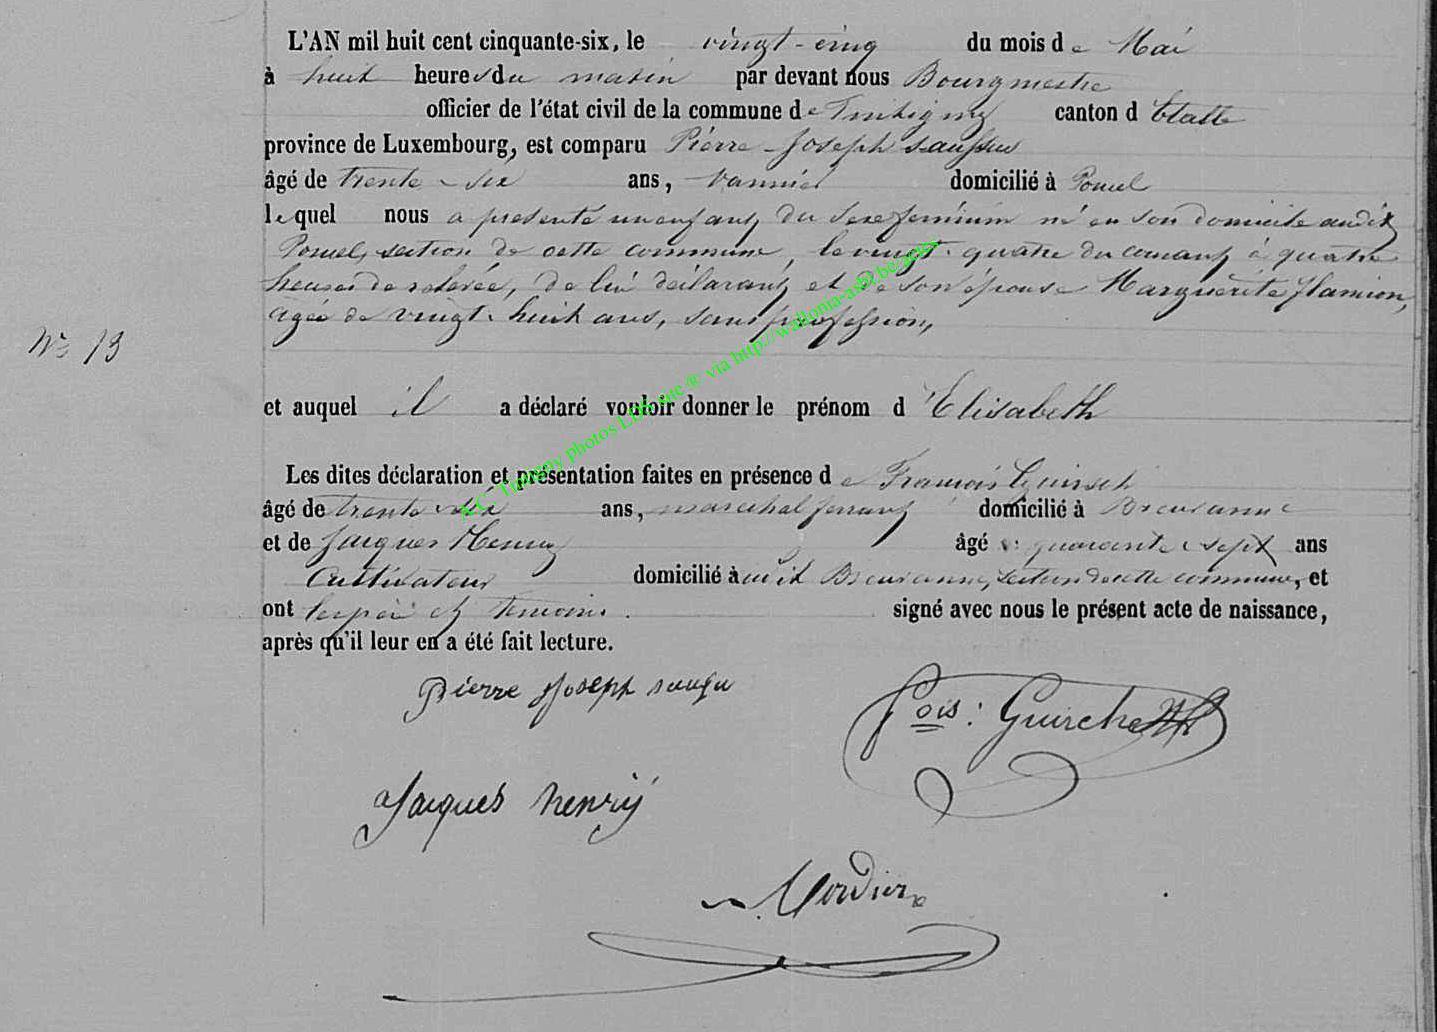 L'AN mil huit cent cinquante-six, le vingt-cinq du mois de Mai
à huit heures du matin par devant nous Bourgmestre
officier de l'état civil de la commune de Tintigny canton d'Etalle
province de Luxembourg, est comparu Pierre-Joseph
âgé de trente-six ans, vannier domicilié à Poncel
lequel nous a présenté un enfant du sexe féminin né en son domicile audit
Poncel, section de cette commune, le vingt-quatre du courant à quatre
heures de relevée, de lui déclarant et de son épouse Marguerite flamion,
agée de vingt-huit ans, sans profession,
N° 13
et auquel il a déclaré vouloir donner le prénom d'Elisabeth
Les dites déclaration et présentation faites en présence de François
âgé de trente-six ans, marechal ferrant domicilié à Breuvanne
et de Jacques Henry âgé de quarante-sept ans
Cultivateur domicilié à udit Breuvanne, section de cette commune, et
ont les père et témoins signé avec nous le présent acte de naissance,
après qu'il leur en a été fait lecture.
Pierre Joseph
fois: Guirche
Jacques henry
A.C. Tintigny photos LDS site ® via http://wallonia-asbl.be/actes